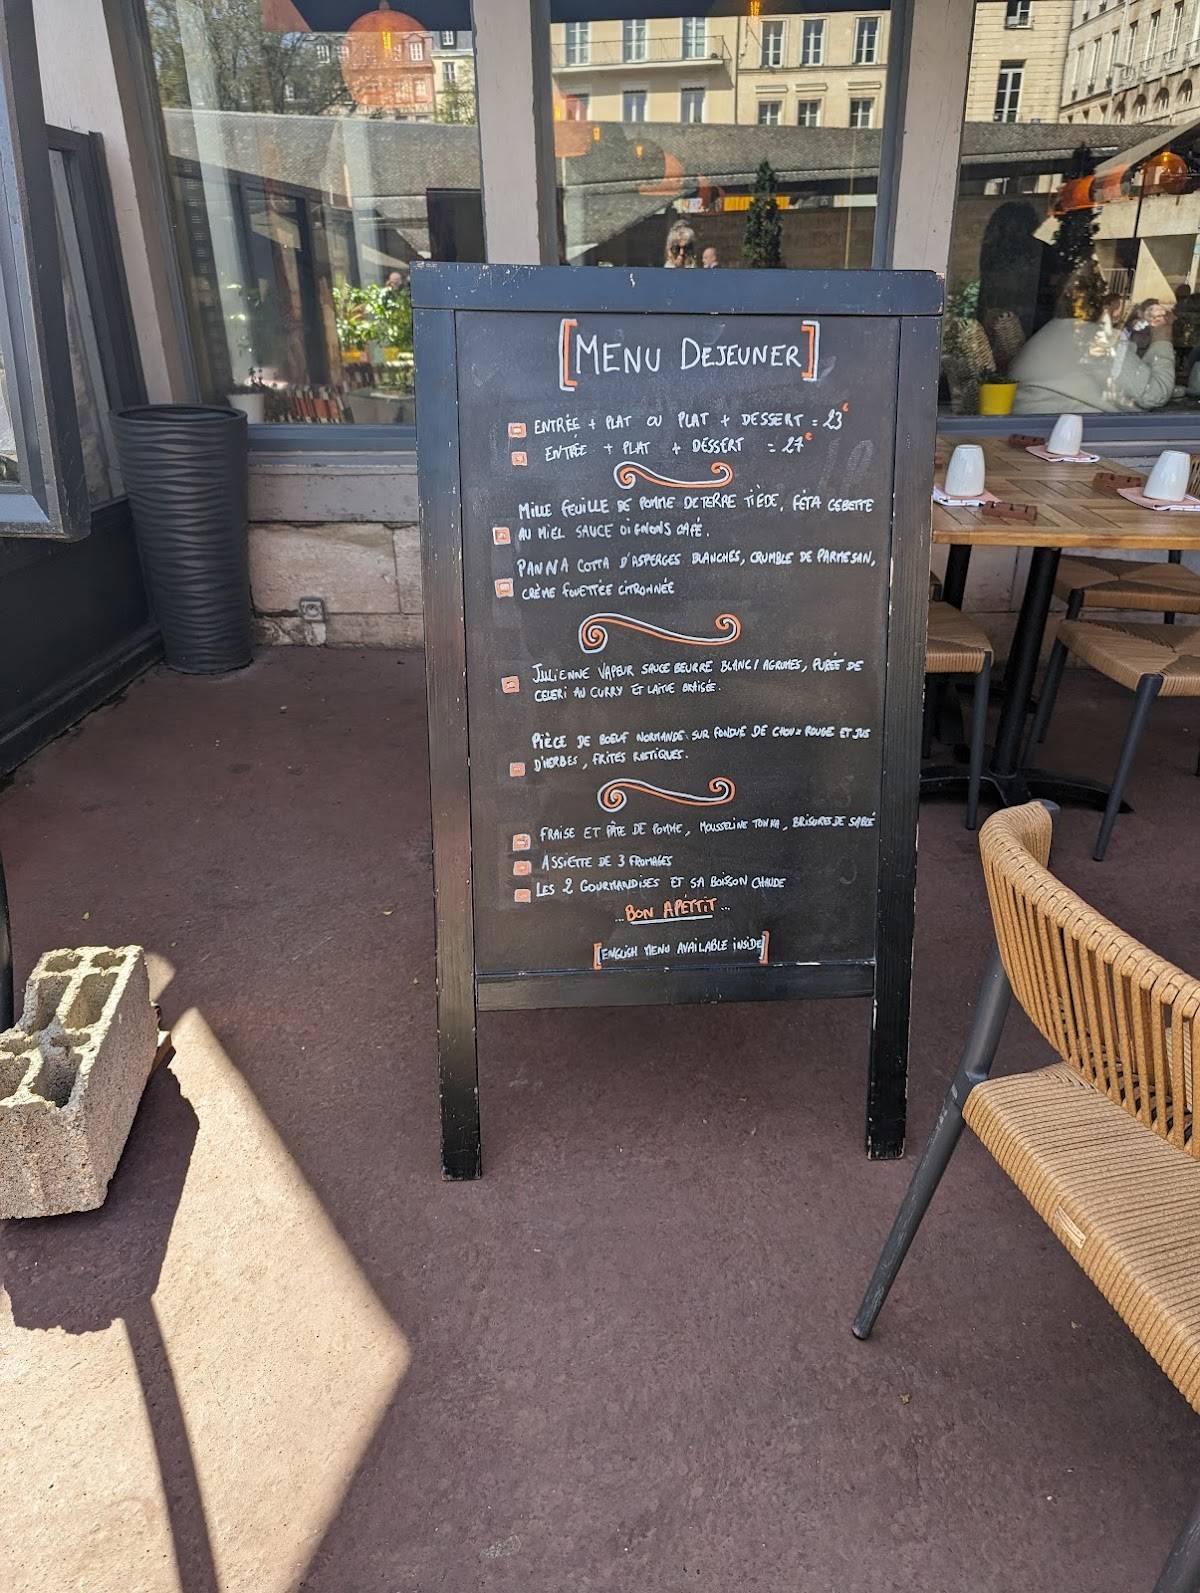 [MENU DEJEUNER]
ENTRÉE + PLAT OU PLAT + DESSERT = 23€
ENTRÉE + PLAT + DESSERT = 27€
MILLE FEUILLE DE POMME DE TERRE TIÈDE, FÉTA CEBETTE
AU MIEL SAUCE OIGNONS CAFÉ.
PANNA COTTA D'ASPERGES BLANCHES, CRUMBLE DE PARMESAN,
CRÈME FOUETTÉE CITRONNÉE
JULIENNE VAPEUR SAUCE BEURRE BLANC / AGRUMES, PURÉE DE
CELERI AU CURRY ET LAITUE BRAISÉE.
PIÈCE DE BOEUF NORMANDE SUR FONDUE DE CHOUX ROUGE ET JUS
D'HERBES, FRITES RUSTIQUES.
FRAISE ET PÂTE DE POMME, MOUSSELINE TONKA, BRISURES DE SABLÉ
ASSIETTE DE 3 FROMAGES
LES 2 GOURMANDISES ET SA BOISSON CHAUDE
...BON APÉTTIT...
[ENGLISH MENU AVAILABLE INSIDE]